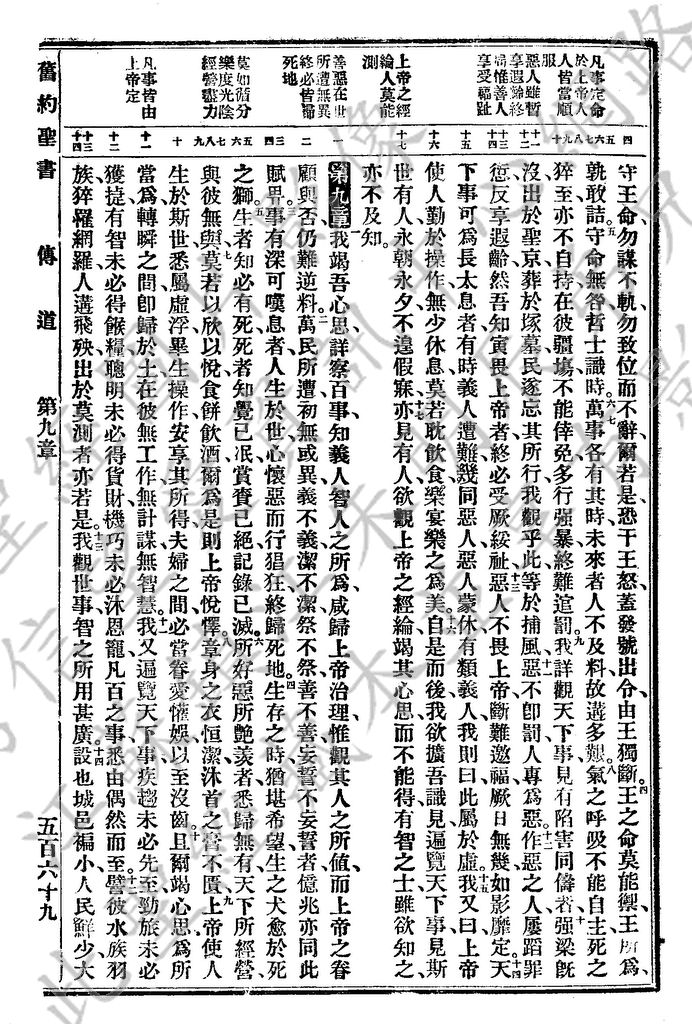 凡事定命
於上帝人
人皆當順
服
惡人雖暫
享遐齡終
福惟善人
享受福趾
上帝之經
綸人莫能
測
善惡在世
所遭無異
終必皆歸
死地
莫如循分
樂度光陰
經營盡力
凡事皆由
上帝定
四
五
六
七
八
九
十
十一
十二
十三
十四
十五
十六
十七
一
二
三
四
五
六
七
八
九
十
十一
十二
十三
十四
守王命勿謀不軌勿致位而不辭爾若是恐干王怒蓋發號出令由王獨斷王之命莫能禦王所爲
孰敢詰守命無咎哲士識時萬事各有其時未來者人不及料故遘多艱氣之呼吸不能自主死之
猝至亦不自持在彼疆場不能倖免多行强暴終難逭罰我詳觀天下事見有陷害同儔者强梁旣
沒出於聖京葬於塚墓民遂忘其所行我觀乎此等於捕風惡不卽罰人專爲惡作惡之人屢蹈罪
愆反享遐齡然吾知寅畏上帝者終必受厥綏祉惡人不畏上帝斷難邀福厥日無幾如影靡定天
下事可爲長太息者有時義人遭難幾同惡人惡人蒙休有類義人我則曰此屬於虛我又曰上帝
使人勤於操作無少休息莫若耽飲食樂宴樂之爲美自是而後我欲擴吾識見遍覽天下事見斯
世有人永朝永夕不遑假寐亦見有人欲觀上帝之經綸竭其心思而不能得有智之士雖欲知之
亦不及知
第九章我竭吾心思詳察百事知義人智人之所爲咸歸上帝治理惟觀其人之所値而上帝之眷
顧與否仍難逆料萬民所遭初無或異義不義潔不潔祭不祭善不善妄誓不妄誓者億兆亦同此
賦畀事有深可嘆息者人生於世心懷惡而行猖狂終歸死地生存之時猶堪希望生之犬愈於死
之獅生者知必有死死者知覺已泯賞賚已絕記錄已滅所好惡所艷羨者悉歸無有天下所經營
與彼無與莫若以欣以悅食餅飲酒爾爲是則上帝悅懌章身之衣恒潔沐首之膏不匱上帝使人
生於斯世悉屬虛浮畢生操作安享其所得夫婦之間必當眷愛懽娛以至沒齒且爾竭心思爲所
當爲轉瞬之間卽歸於土在彼無工作無計謀無智慧我又遍覽天下事疾趨未必先至勁旅未必
獲捷有智未必得餱糧聰明未必得貨財機巧未必沐恩寵凡百之事悉由偶然而至譬彼水族羽
族猝罹網羅人遘飛殃出於莫測者亦若是我觀世事智之所用甚廣設也城邑褊小人民鮮少大
舊約聖書 傳道 第九章 五百六十九